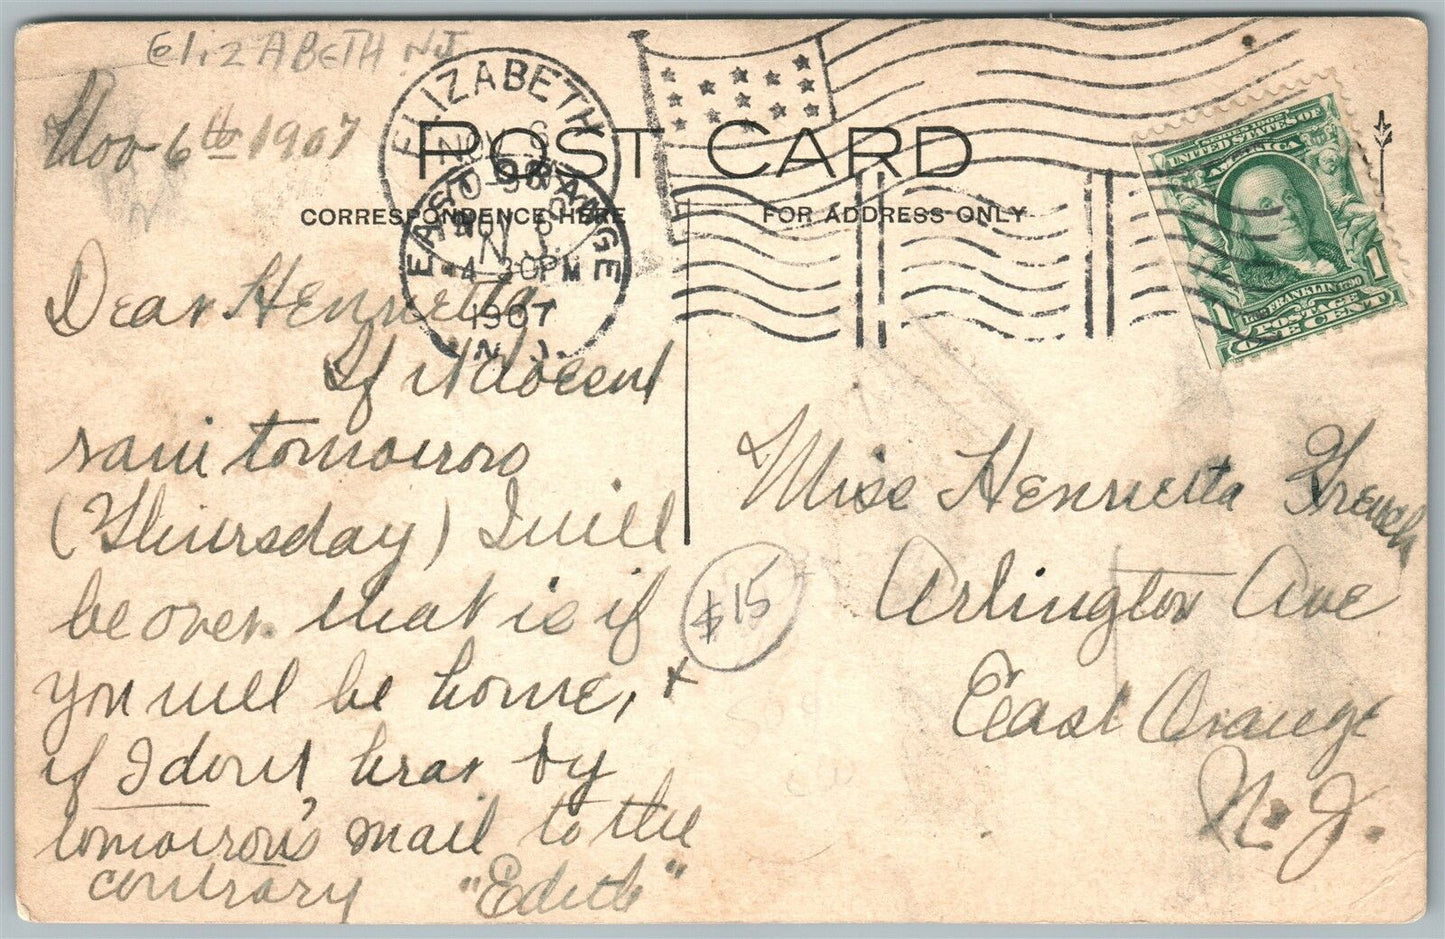 Elizabeth NJ
Nov 6th 1907
ELIZABETH
NOV 6
N.J.
EAST ORANGE
NOV 6
4-30PM
1907
N.J.
POST CARD
CORRESPONDENCE HERE
FOR ADDRESS ONLY
SERIES 1902
UNITED STATES OF
AMERICA
1706 FRANKLIN 1790
POSTAGE
ONE CENT
1 1
Dear Henrietta
If it doesent
rain tomorrow
(Thursday) I will
be over. that is if
you will be home, x
if I dont hear by
tomorrow's mail to the
contrary "Edith"
$15
Miss Henrietta French
Arlington Ave
East Orange
N. J.